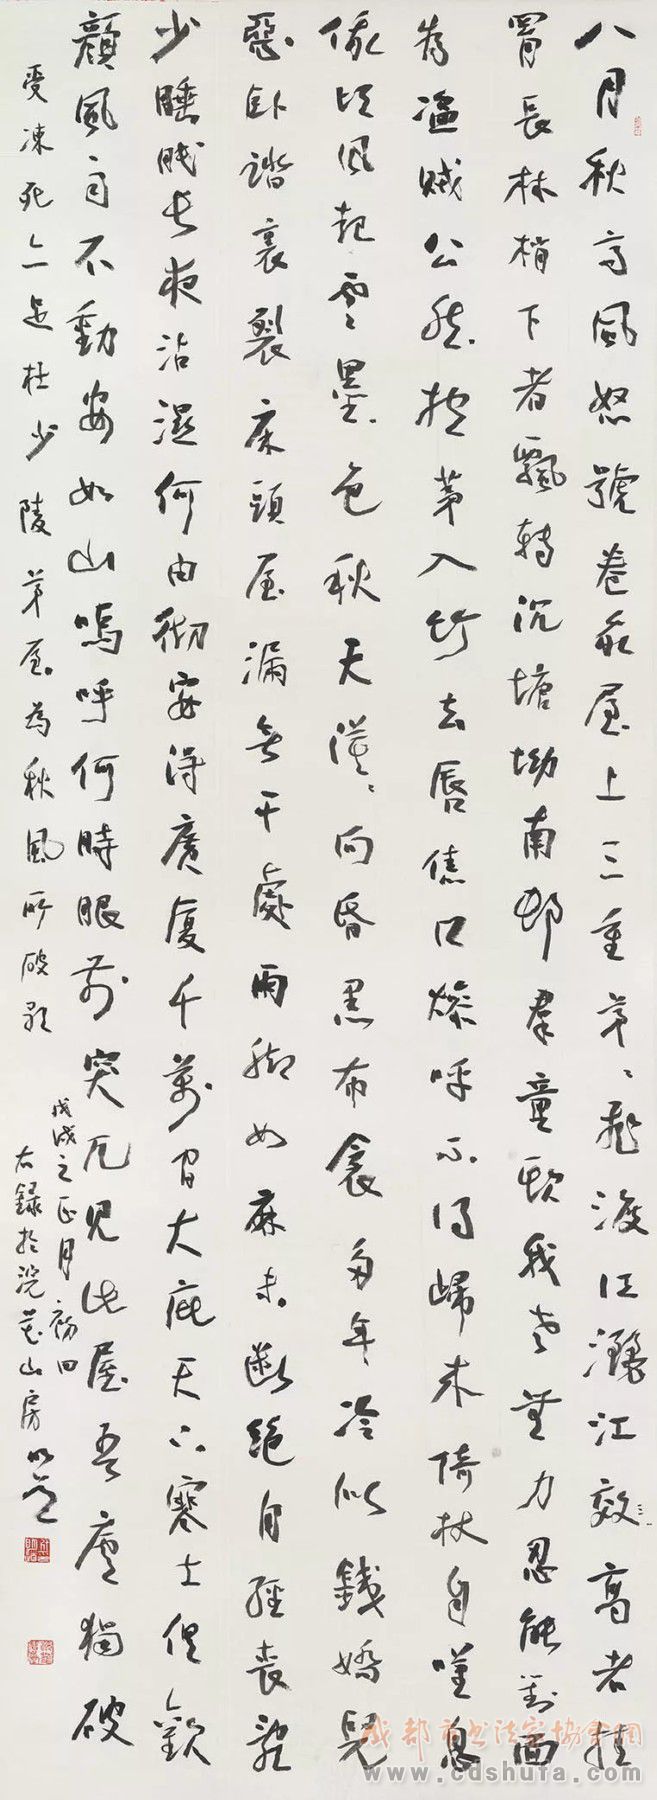 八月秋高風怒號卷我屋上三重茅〻飛渡江灑江效高者挂
罥長林梢下者飄轉沉塘坳南邨群童欺我老無力忍能對面
為盜賊公然抱茅入竹去唇焦口燥呼不得歸來倚杖自嘆息
俄頃風起雲墨色秋天漠〻向昏黑布衾多年冷似鐵嬌兒
惡臥踏裏裂床頭屋漏無干處雨腳如麻未斷絕自經喪亂
少睡眠長夜沾濕何由徹安得廣廈千萬間大庇天下寒士俱歡
顏風雨不動安如山嗚呼何時眼前突兀見此屋吾廬獨破
受凍死亦足杜少陵茅屋為秋風所破歌
戊戌之正月初四
右錄於浣花山房
成都市书法家協會網
www.cdshufa.com